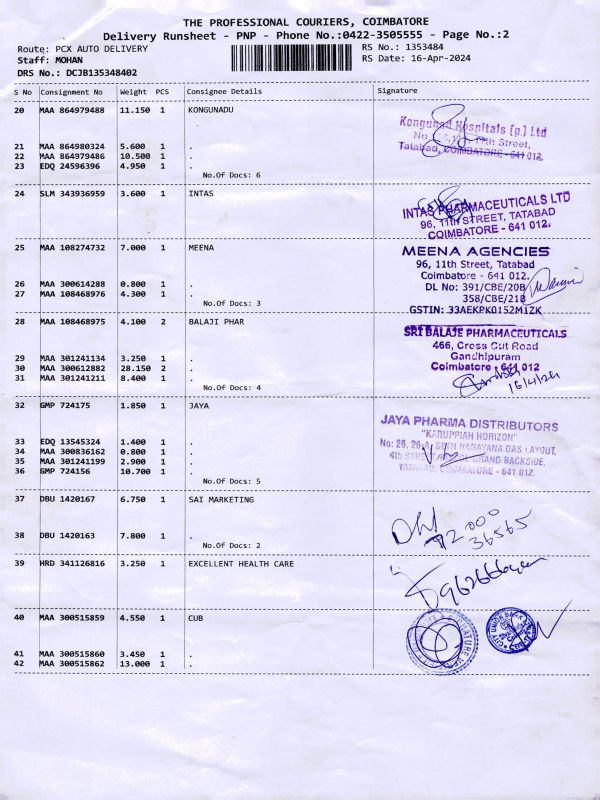 THE PROFESSIONAL COURIERS, COIMBATORE
Delivery Runsheet - PNP - Phone No.:0422-3505555 - Page No.:2
Route: PCX AUTO DELIVERY
RS No.: 1353484
Staff: MOHAN
RS Date: 16-Apr-2024
DRS No.: DCJB135348402
S No Consignment No Weight PCS Consignee Details Signature
20 MAA 864979488 11.150 1 KONGUNADU
Kongunad Hospitals (p.) Ltd
11th Street,
Tatabad, COIMBATORE - 641 012.
21 MAA 864980324 5.600 1 .
22 MAA 864979486 10.500 1 .
23 EDQ 24596396 4.950 1 .
No.Of Docs: 6
24 SLM 343936959 3.600 1 INTAS
INTAS PHARMACEUTICALS LTD
96, 11th STREET, TATABAD
COIMBATORE - 641 012.
25 MAA 108274732 7.000 1 MEENA
MEENA AGENCIES
96, 11th Street, Tatabad
Coimbatore - 641 012.
DL No: 391/CBE/20B
358/CBE/21B
GSTIN: 33AEKPK0152M1ZK
26 MAA 300614288 0.800 1 .
27 MAA 108468976 4.300 1 .
No.Of Docs: 3
28 MAA 108468975 4.100 2 BALAJI PHAR
SRI BALAJE PHARMACEUTICALS
466, Cross Cut Road
Gandhipuram
Coimbatore - 641 012
16/4/24
29 MAA 301241134 3.250 1 .
30 MAA 300612882 28.150 2 .
31 MAA 301241211 8.400 1 .
No.Of Docs: 4
32 GMP 724175 1.850 1 JAYA
JAYA PHARMA DISTRIBUTORS
"KARUPPIAH HORIZON"
No: 26, 26-A, SETH NARAYANA DAS LAYOUT,
4th STREET, GRAND BACKSIDE,
TATABAD, COIMBATORE - 641 012.
33 EDQ 13545324 1.400 1 .
34 MAA 300836162 0.800 1 .
35 MAA 301241199 2.900 1 .
36 GMP 724156 10.700 1 .
No.Of Docs: 5
37 DBU 1420167 6.750 1 SAI MARKETING
38 DBU 1420163 7.800 1 .
No.Of Docs: 2
39 HRD 341126816 3.250 1 EXCELLENT HEALTH CARE
40 MAA 300515859 4.550 1 CUB
CITY UNION BANK
41 MAA 300515860 3.450 1 .
42 MAA 300515862 13.000 1 .